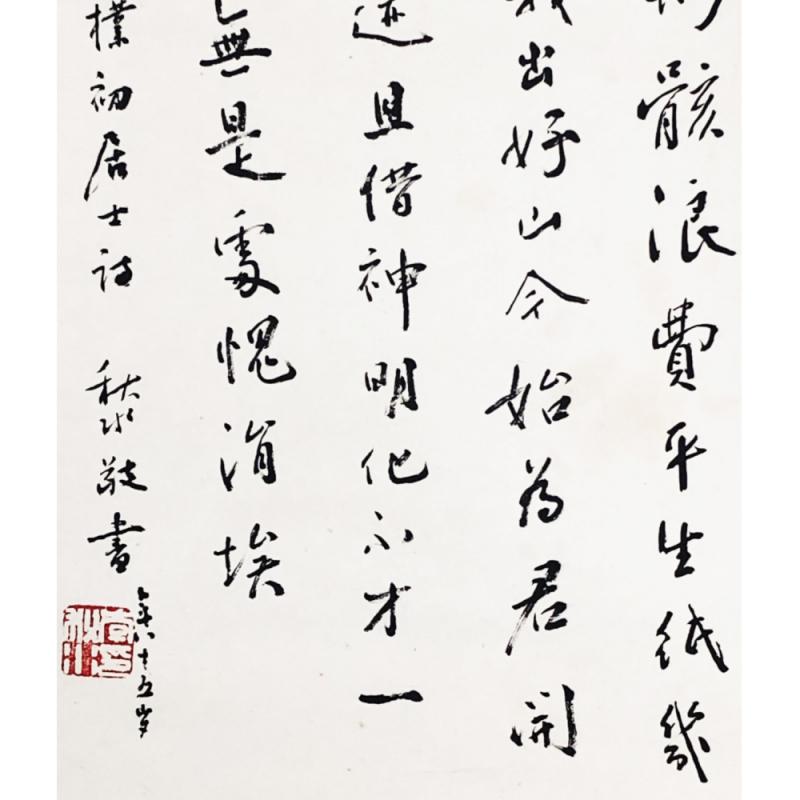 骸浪費平生紙幾
出好山今始為君開
迹且借神明化不才一
無是處愧涓埃
樸初居士詩 秋水敬書
年八十五岁